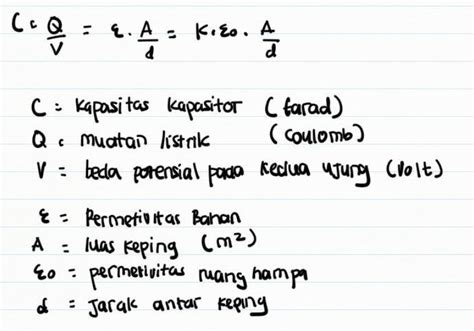 C = Q/V = ε . A/d = K . εo . A/d
C = Kapasitas Kapasitor (farad)
Q = muatan listrik (coulomb)
V = beda potensial pada kedua ujung (volt)
ε = Permetivitas Bahan
A = luas keping (m²)
εo = permetivitas ruang hampa
d = Jarak antar keping